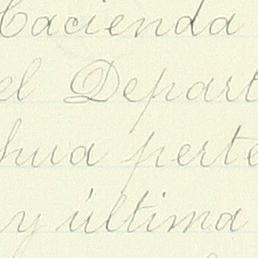 Hacienda
el Depart
hua perte
y última